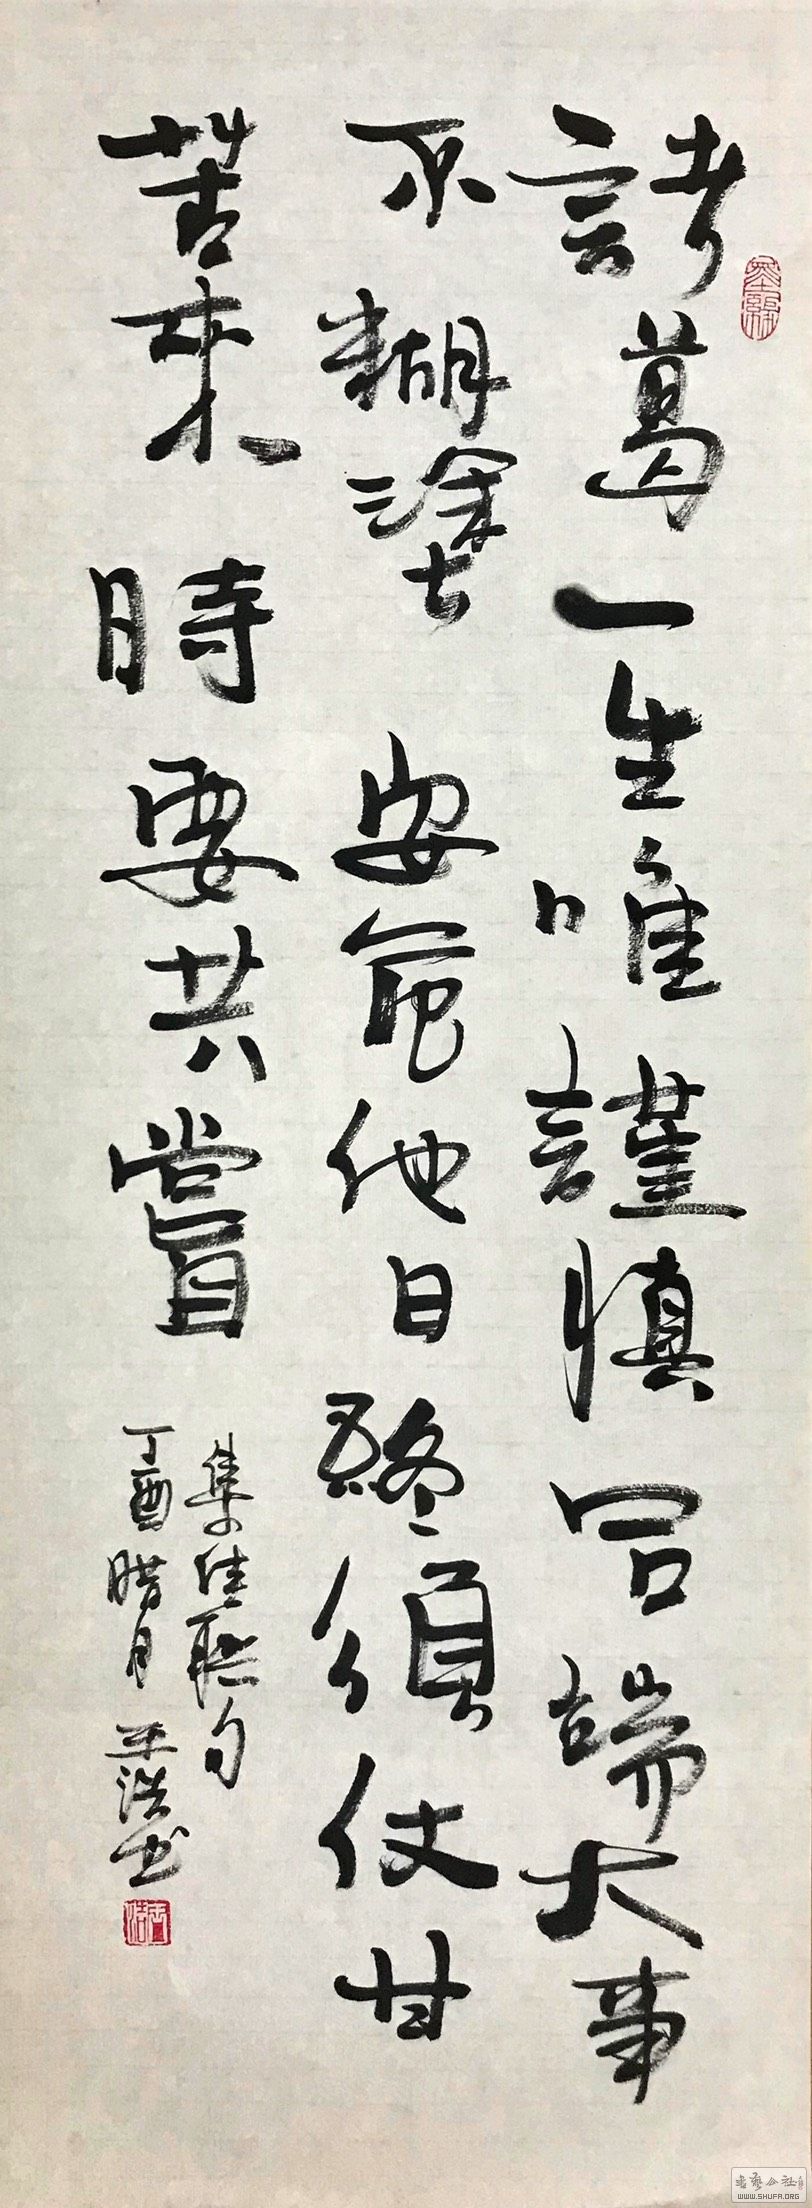 諸葛一生唯謹慎吕端大事
不糊塗安危他日終須仗甘
苦來時要共嘗
集佳聯句
丁酉腊月王浩书
WWW.SHUFA.ORG